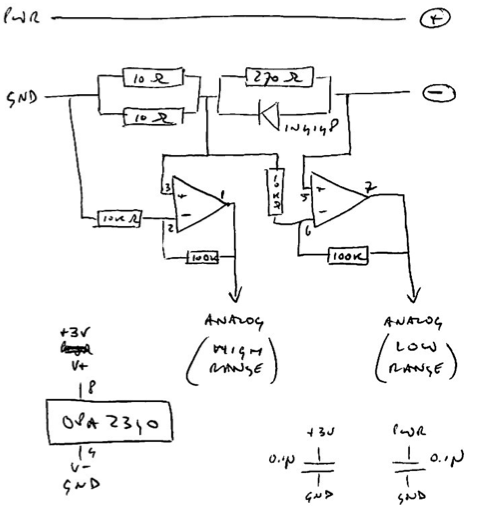 PWR +
GND 10 Ω 270 Ω −
10 Ω 1N4148
3 + 1 10KΩ 5 + 7
10KΩ 2 − 6 −
100K 100K
ANALOG ANALOG
(HIGH RANGE) (LOW RANGE)
+3V
V+
8
OPA 2340
4
V−
GND
+3V PWR
0.1µ 0.1µ
GND GND